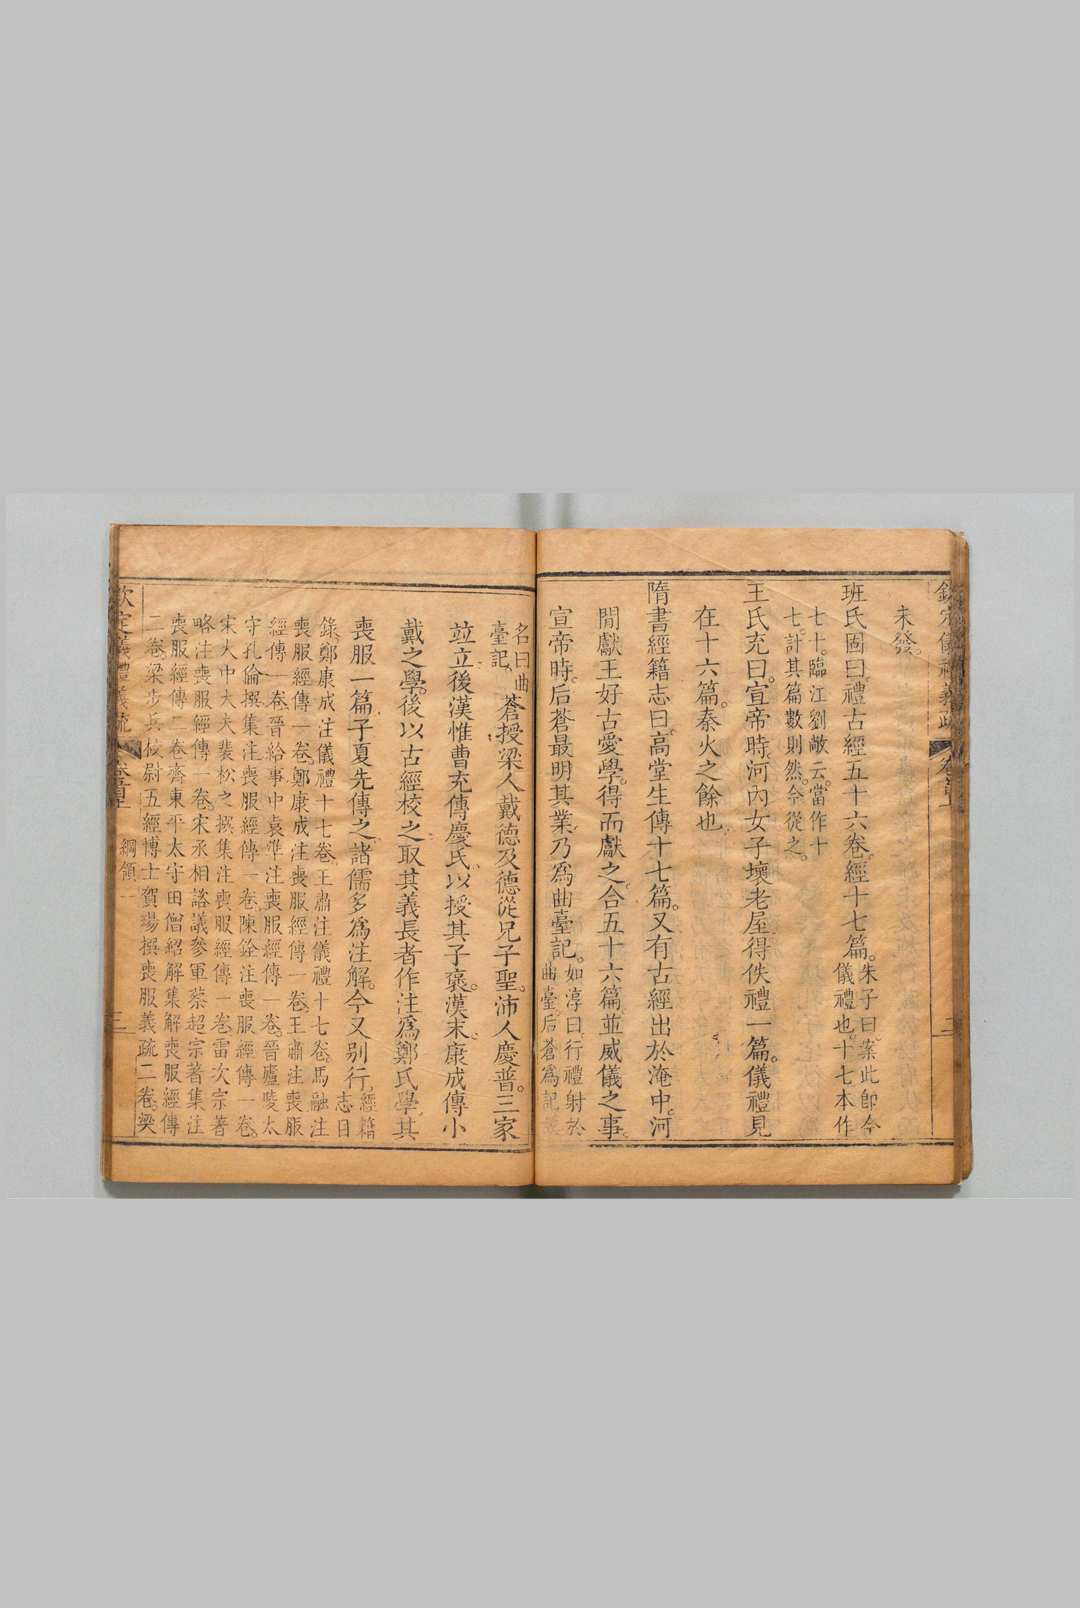 欽定儀禮義疏 卷首上 二
未發。
班氏固曰。禮古經五十六卷。經十七篇。朱子曰。案此即今
儀禮也。十七本作
七十。臨江劉敞云。當作十
七。計其篇數則然。今從之。
王氏充曰。宣帝時。河內女子壞老屋。得佚禮一篇。儀禮見
在十六篇。秦火之餘也。
隋書經籍志曰。高堂生傳十七篇。又有古經出於淹中。河
閒獻王好古愛學。得而獻之。合五十六篇。並威儀之事。
宣帝時。后蒼最明其業。乃為曲臺記。如淳曰。行禮射於
曲臺。后蒼為記。
名曰曲
臺記。蒼授梁人戴德及德從兄子聖。沛人慶普。三家
竝立。後漢惟曹充傳慶氏。以授其子褒。漢末康成傳小
戴之學。後以古經校之。取其義長者作注。為鄭氏學。其
喪服一篇。子夏先傳之。諸儒多為注解。今又別行。經籍
志曰
錄。鄭康成注儀禮十七卷。王肅注儀禮十七卷。馬融注
喪服經傳一卷。鄭康成注喪服經傳一卷。王肅注喪服
經傳一卷。晉給事中袁準注喪服經傳一卷。晉廬陵太
守孔倫撰集注喪服經傳一卷。陳銓注喪服經傳一卷。
宋大中大夫裴松之撰集注喪服經傳一卷。雷次宗著
略注喪服經傳一卷。宋丞相諮議參軍蔡超宗著集注
喪服經傳二卷。齊東平太守田僧紹解集解喪服經傳
二卷。梁步兵校尉五經博士賀瑒撰喪服義疏二卷。
欽定儀禮義疏 卷首上 綱領一 三